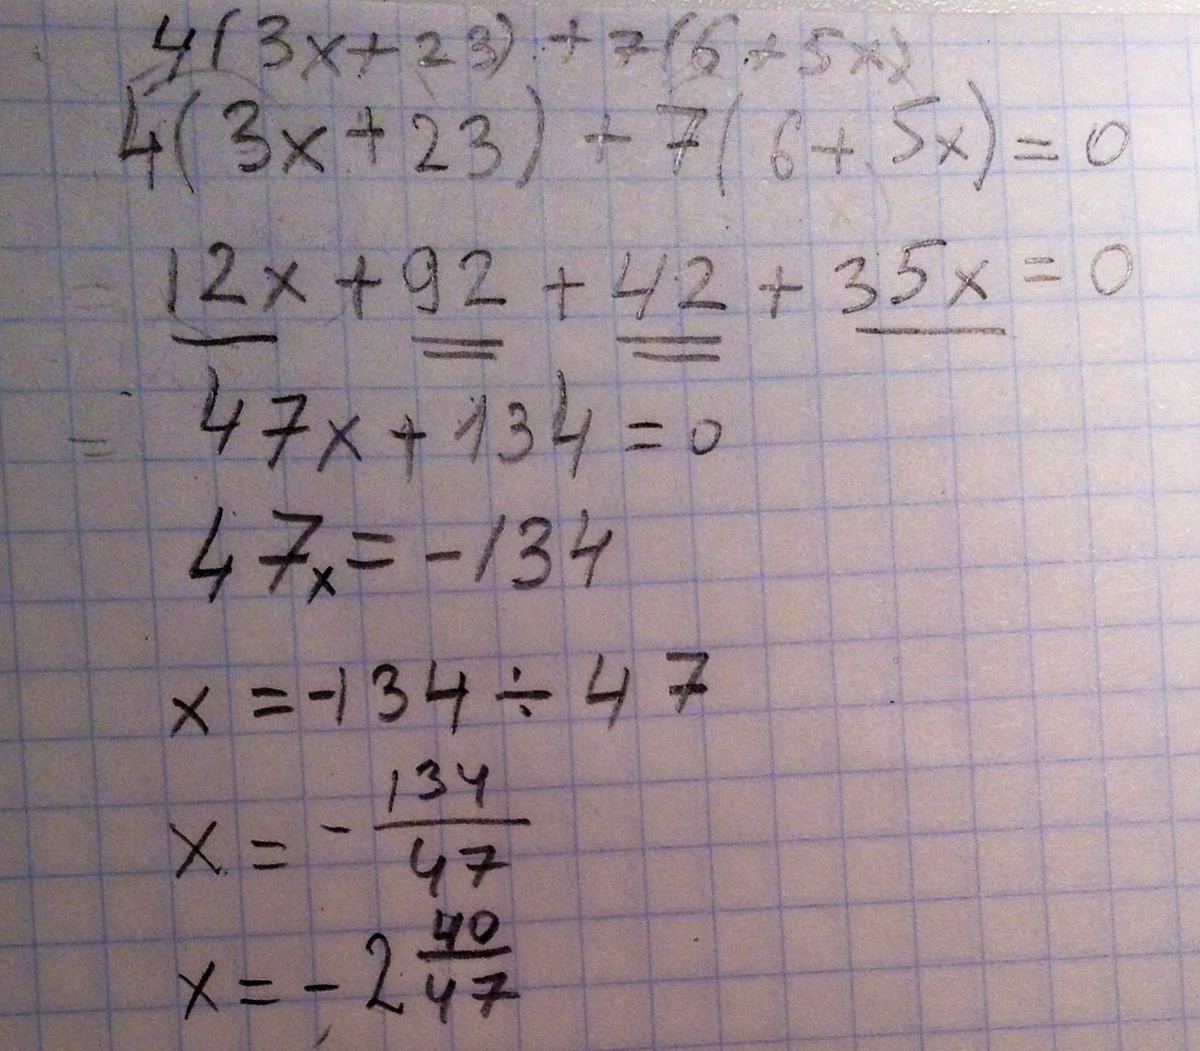 4(3x+23) + 7(6+5x)
4(3x+23) + 7(6+5x)=0
= 12x+92+42+35x=0
= 47x+134=0
47x=-134
x=-134÷47
x=-134/47
x=-2 40/47